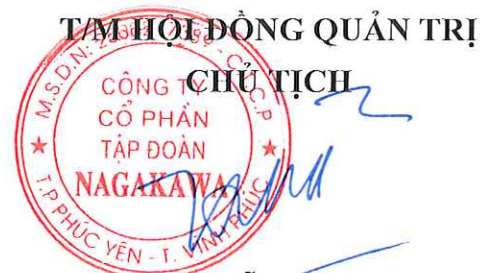 T/M HỘI ĐỒNG QUẢN TRỊ
CHỦ TỊCH
CÔNG TY
CỔ PHẦN
TẬP ĐOÀN
NAGAKAWA
T.P PHÚC YÊN - T. VĨNH PHÚC